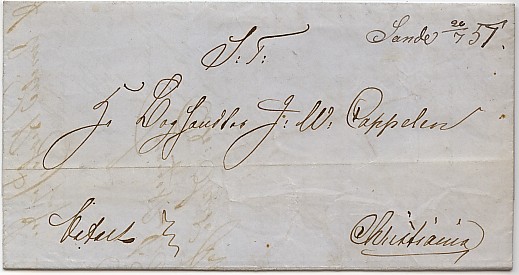 Sande 26/7 51.
S: T:
Hr Boghandler J: W: Cappelen
betalt
Christiania